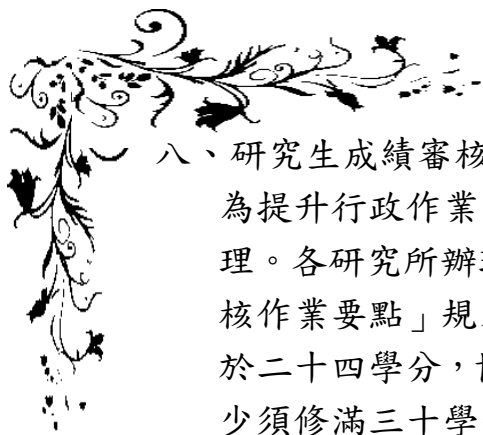 八、研究生成績審核
為提升行政作業
理。各研究所辦
核作業要點」規
於二十四學分,
少須修滿三十學